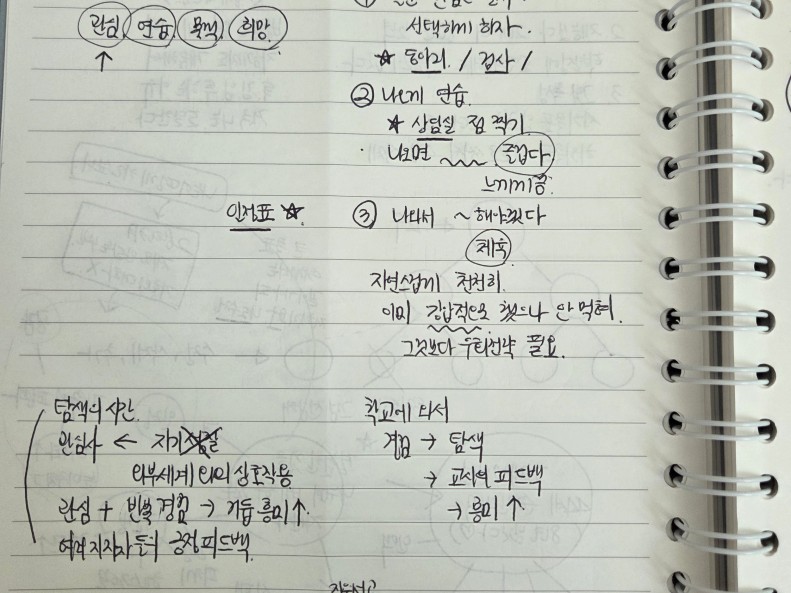 관심 연습 목적 희망
↑
선택하게 하자.
☆ 동아리 / 검사 /
② 나에게 연습
★ 상담실 점 찍기
나오면 즐겁다
느끼게끔.
인정표 ☆
③ 나타서 ~ 해야겠다
체육
자연스럽게 천천히.
이미 강압적으로 했으나 안 먹혀.
그것보다 우회전략 필요.
탐색의 시간.
관심사 ← 자기성찰
외부세계와의 상호작용
관심 + 반복 경험 → 거듭 흥미↑
여러 지지자들의 긍정 피드백
학교에 와서
경험 → 탐색
→ 교사의 피드백
→ 흥미↑